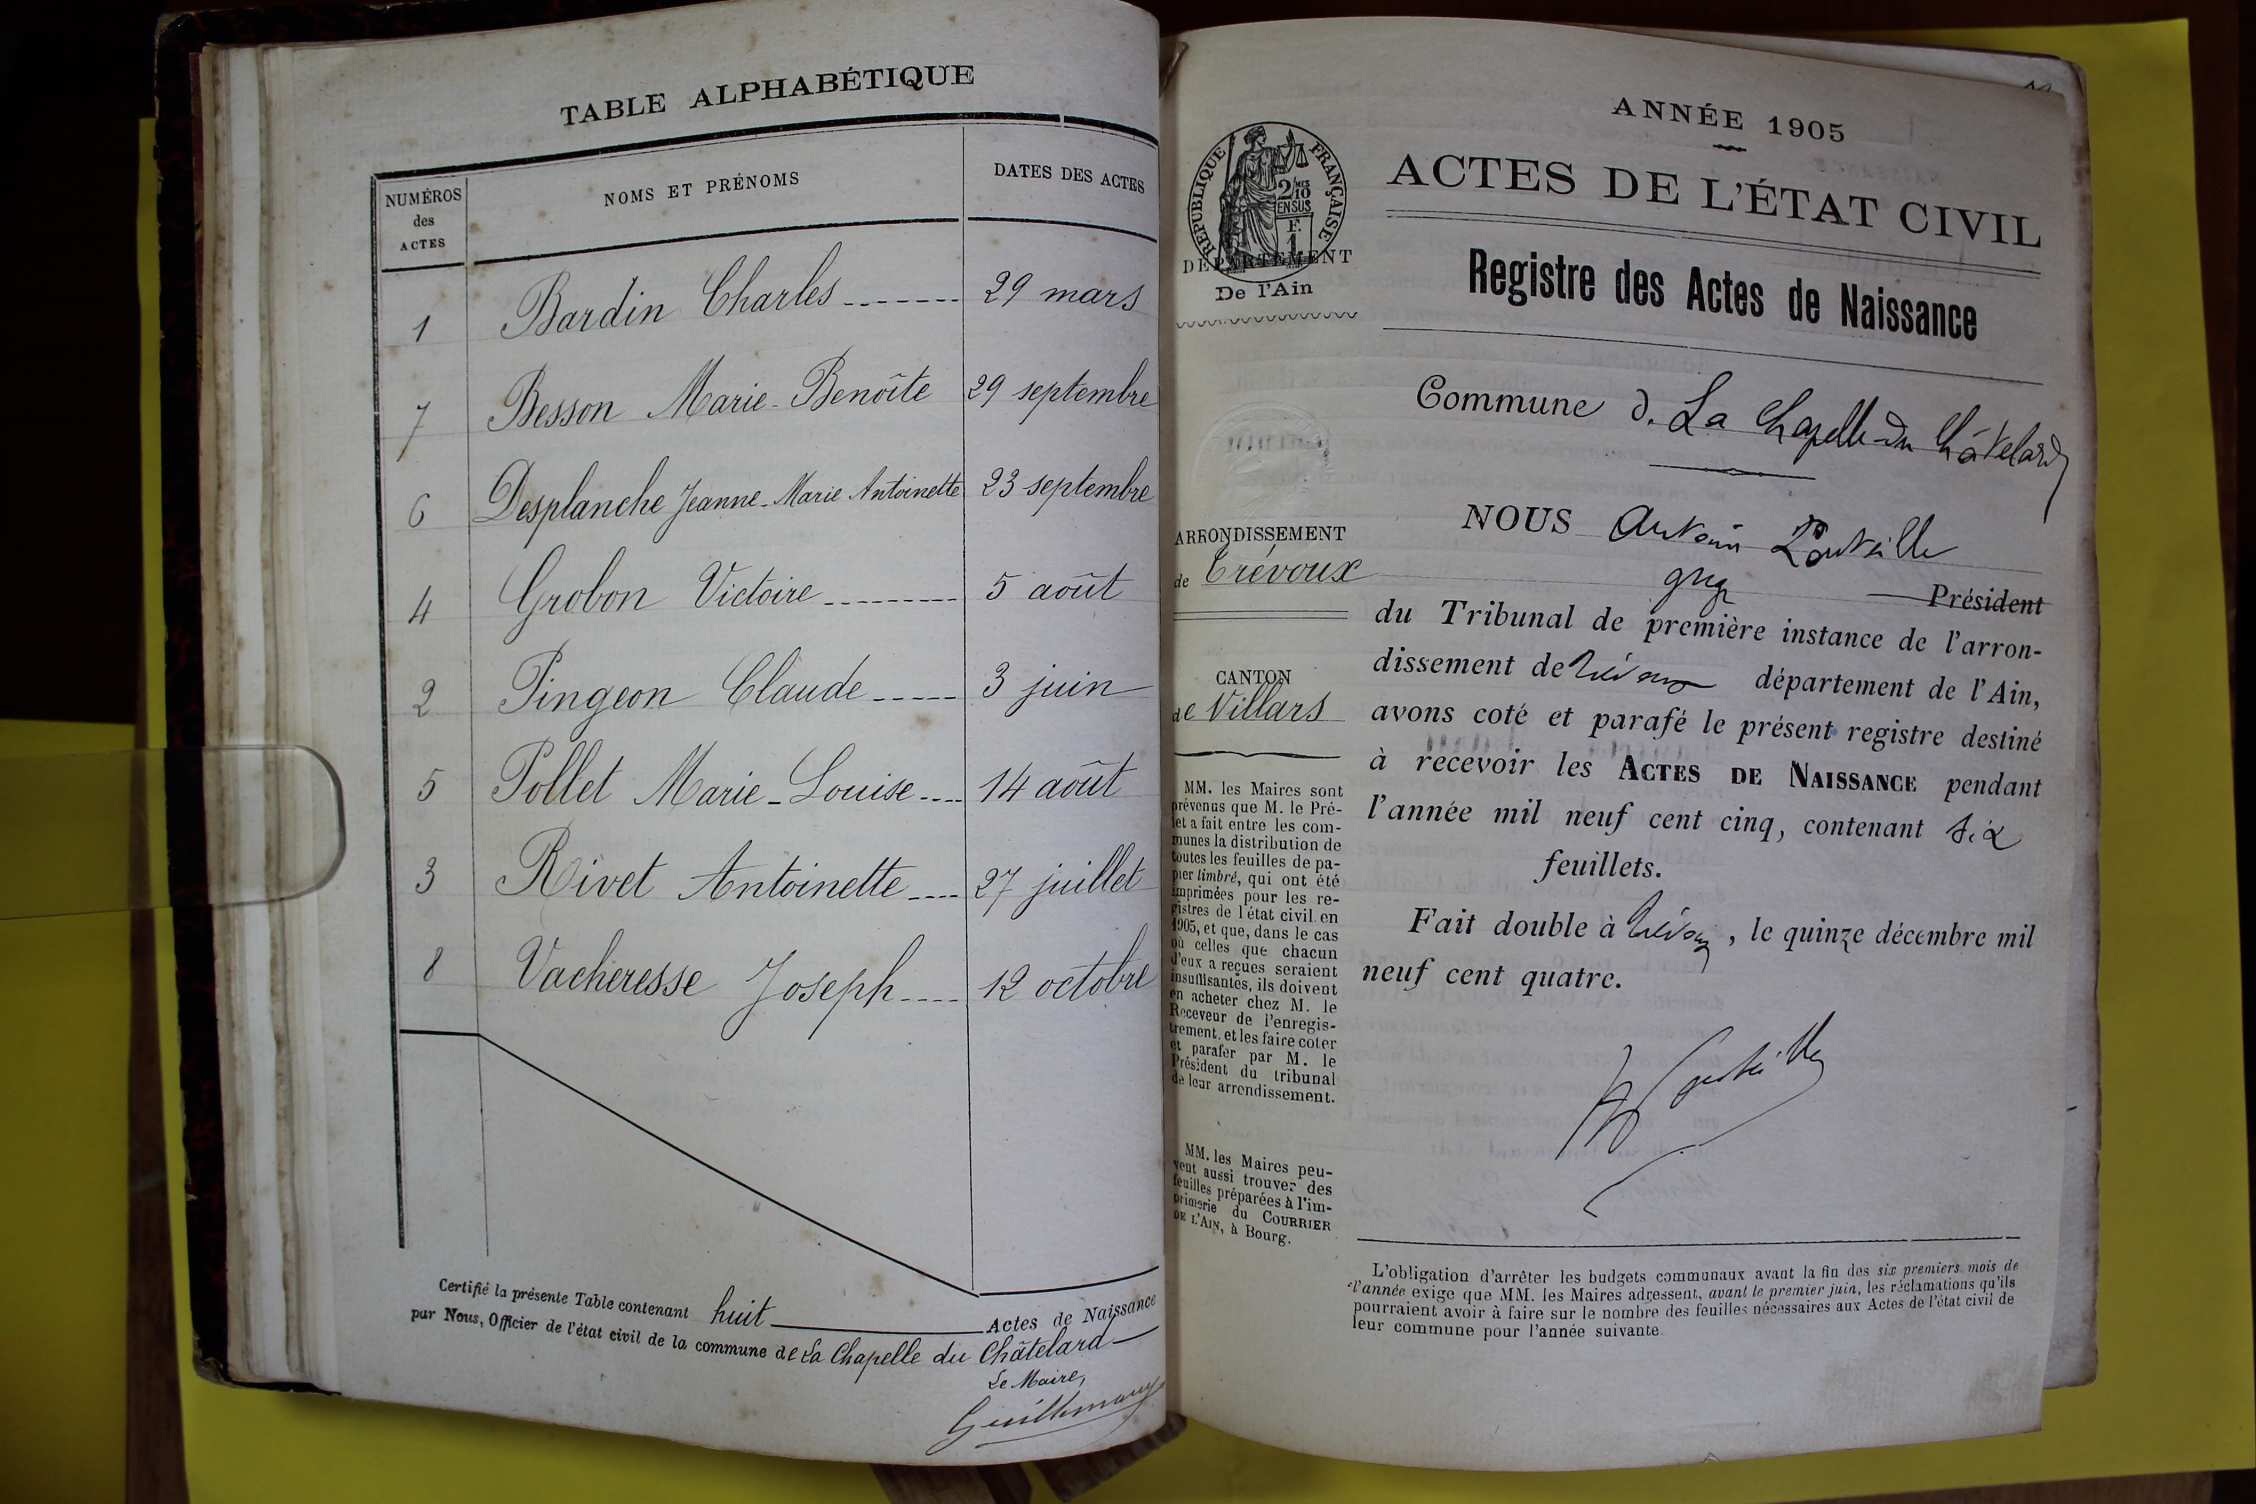 TABLE ALPHABÉTIQUE
NUMÉROS des ACTES
NOMS ET PRÉNOMS
DATES DES ACTES
1 Bardin Charles 29 mars
7 Besson Marie-Benoîte 29 septembre
6 Desplanche Jeanne-Marie Antoinette 23 septembre
4 Grobon Victoire 5 août
2 Pingeon Claude 3 juin
5 Pollet Marie-Louise 14 août
3 Rivet Antoinette 27 juillet
8 Vacheresse Joseph 12 octobre
Certifié la présente Table contenant huit Actes de Naissance
par Nous, Officier de l'état civil de la commune de La Chapelle du Châtelard
Le Maire,
ANNÉE 1905
ACTES DE L'ÉTAT CIVIL
Registre des Actes de Naissance
RÉPUBLIQUE FRANÇAISE
2/10
EN SUS
F.
1
DÉPARTEMENT
De l'Ain
ARRONDISSEMENT
de Trévoux
CANTON
de Villars
MM. les Maires sont
prévenus que M. le Pré-
fet a fait entre les com-
munes la distribution de
toutes les feuilles de pa-
pier timbré, qui ont été
imprimées pour les re-
gistres de l'état civil en
1905, et que, dans le cas
où celles que chacun
d'eux a reçues seraient
insuffisantes, ils doivent
en acheter chez M. le
Receveur de l'enregis-
trement, et les faire coter
et parafer par M. le
Président du tribunal
de leur arrondissement.
MM. les Maires peu-
vent aussi trouver des
feuilles préparées à l'im-
primerie du COURRIER
DE L'AIN, à Bourg.
Commune d. La Chapelle-du Châtelard
NOUS
Président
du Tribunal de première instance de l'arron-
dissement de Trévoux département de l'Ain,
avons coté et parafé le présent registre destiné
à recevoir les ACTES DE NAISSANCE pendant
l'année mil neuf cent cinq, contenant six
feuillets.
Fait double à Trévoux, le quinze décembre mil
neuf cent quatre.
L'obligation d'arrêter les budgets communaux avant la fin des six premiers mois de
l'année exige que MM. les Maires adressent, avant le premier juin, les réclamations qu'ils
pourraient avoir à faire sur le nombre des feuilles nécessaires aux Actes de l'état civil de
leur commune pour l'année suivante.